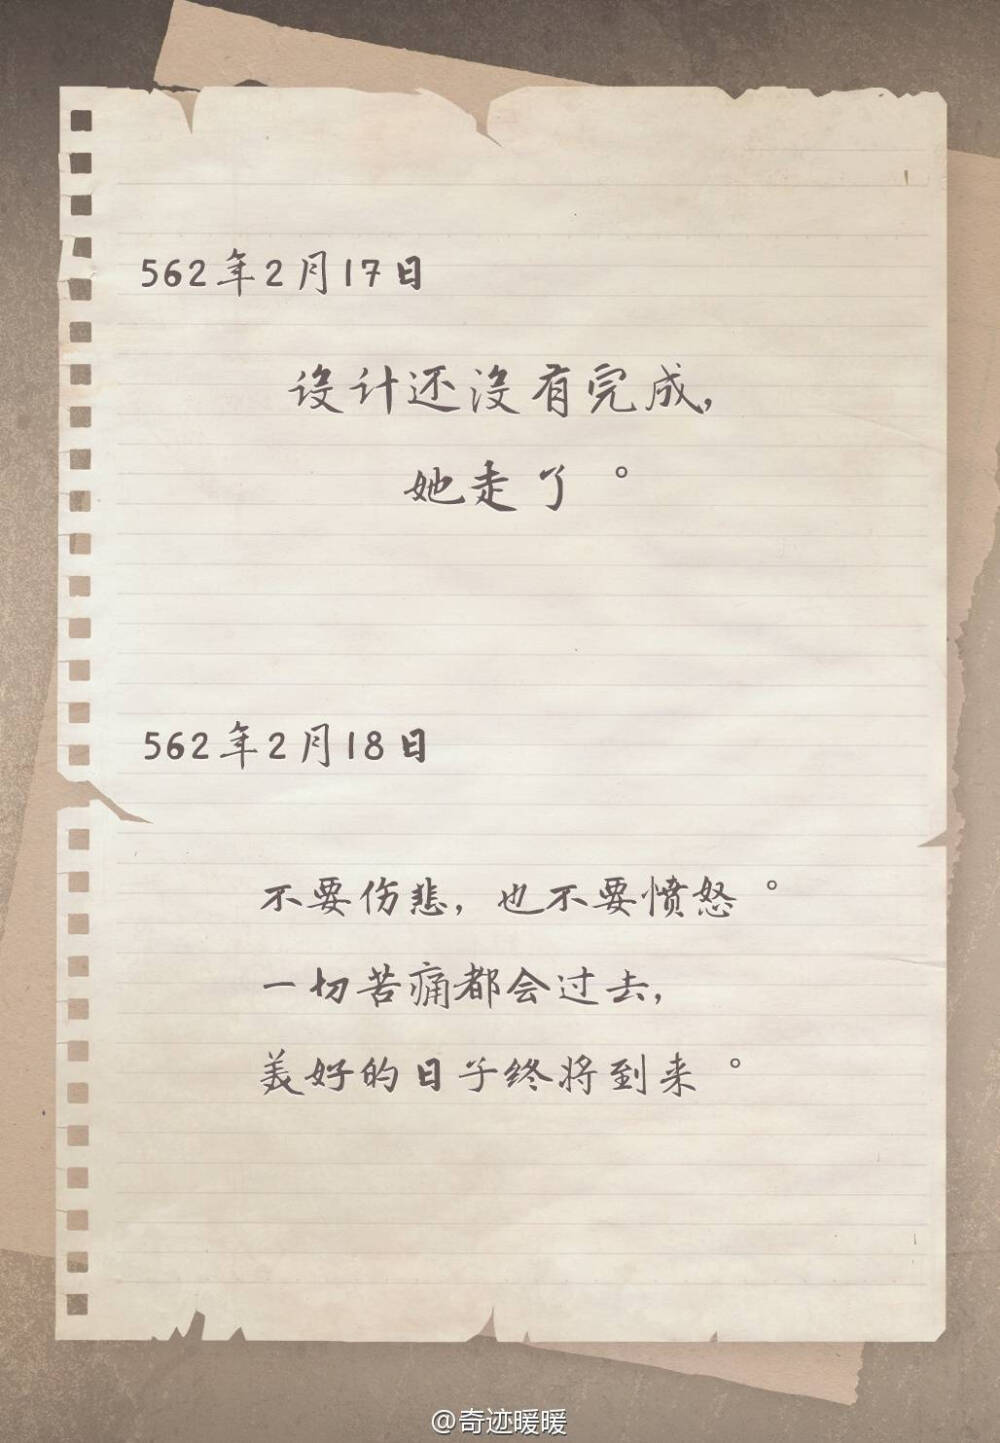 562年2月17日
设计还没有完成,
她走了。
562年2月18日
不要伤悲,也不要愤怒。
一切苦痛都会过去,
美好的日子终将到来。
@奇迹暖暖